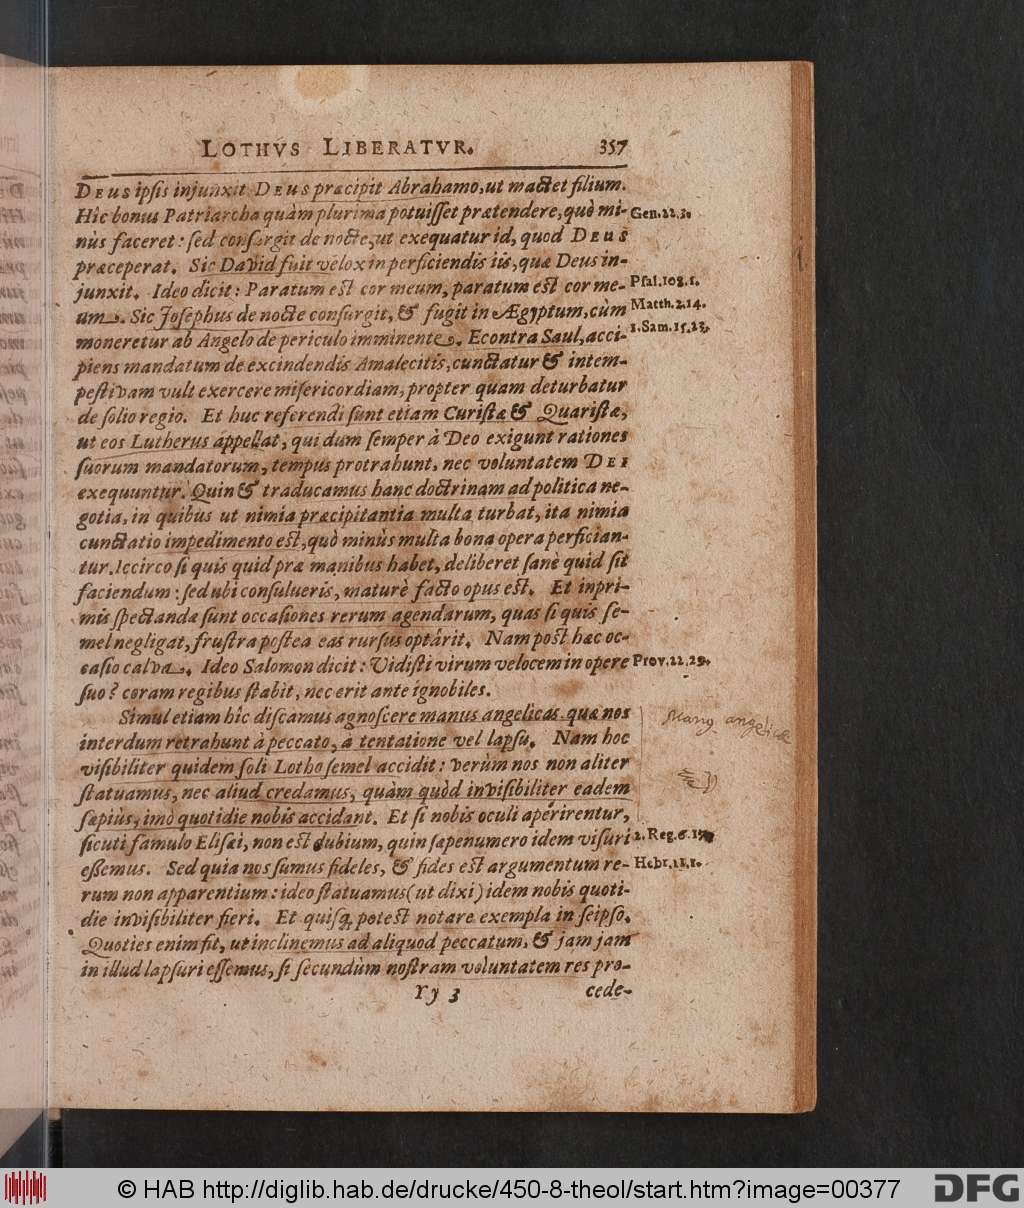 LOTHVS LIBERATVR. 357
DEUS ipsis injunxit DEUS præcipit Abrahamo, ut mactet filium.
Hîc bonus Patriarcha quàm plurima potuisset prætendere, quò mi- Gen. 22. 3.
nùs faceret: sed consurgit de nocte, ut exequatur id, quod DEUS
præceperat. Sic David fuit velox in perficiendis iis, quæ Deus in-
junxit. Ideo dicit: Paratum est cor meum, paratum est cor me- Psal. 108. 1.
um. Sic Josephus de nocte consurgit, & fugit in Ægyptum, cùm Matth. 2. 14.
moneretur ab Angelo de periculo imminente. Econtra Saul, acci- 1. Sam. 15. 23.
piens mandatum de excindendis Amalecitis, cunctatur & intem-
pestivam vult exercere misericordiam, propter quam deturbatur
de solio regio. Et huc referendi sunt etiam Curistæ & Quaristæ,
ut eos Lutherus appellat, qui dum semper à Deo exigunt rationes
suorum mandatorum, tempus protrahunt, nec voluntatem DEI
exequuntur. Quin & traducamus hanc doctrinam ad politica ne-
gotia, in quibus ut nimia præcipitantia multa turbat, ita nimia
cunctatio impedimento est, quò minùs multa bona opera perfician-
tur. Iccirco si quis quid præ manibus habet, deliberet sanè quid sit
faciendum: sed ubi consulueris, maturè facto opus est. Et inpri-
mis spectandæ sunt occasiones rerum agendarum, quas si quis se-
mel negligat, frustra postea eas rursus optârit. Nam post hæc oc-
casio calva. Ideo Salomon dicit: Vidisti virum velocem in opere Prov. 22. 29.
suo? coram regibus stabit, nec erit ante ignobiles.
Simul etiam hîc discamus agnoscere manus angelicas, quæ nos Manus angelicæ
interdum retrahunt à peccato, à tentatione vel lapsu. Nam hoc
visibiliter quidem soli Lotho semel accidit: verùm nos non aliter
statuamus, nec aliud credamus, quàm quòd invisibiliter eadem
sæpiùs, imò quotidie nobis accidant. Et si nobis oculi aperirentur,
sicuti famulo Elisæi, non est dubium, quin sæpenumero idem visuri 2. Reg. 6. 17.
essemus. Sed quia nos sumus fideles, & fides est argumentum re- Hebr. 11. 1.
rum non apparentium: ideo statuamus (ut dixi) idem nobis quoti-
die invisibiliter fieri. Et quisq; potest notare exempla in seipso.
Quoties enim fit, ut inclinemus ad aliquod peccatum, & jam jam
in illud lapsuri essemus, si secundùm nostram voluntatem res pro-
Yy 3 cede-
© HAB http://diglib.hab.de/drucke/450-8-theol/start.htm?image=00377
DFG